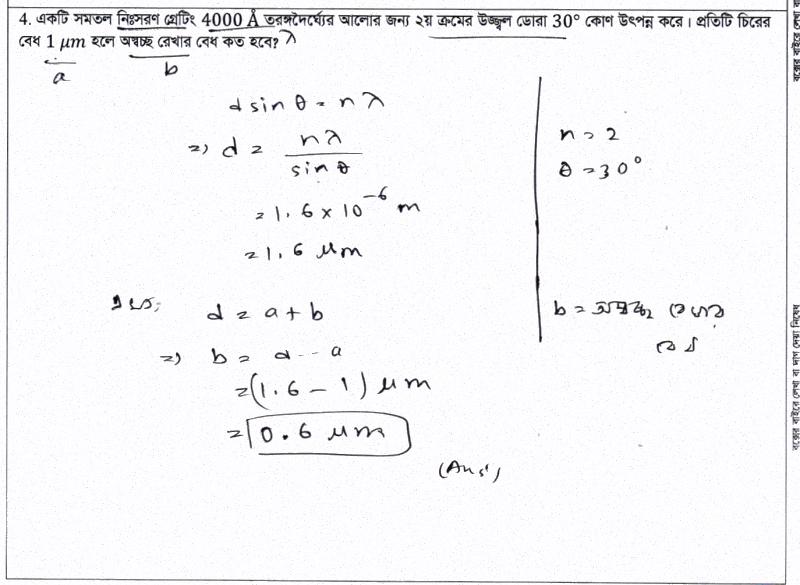 4. একটি সমতল নিঃসরণ গ্রেটিং 4000 Å তরঙ্গদৈর্ঘ্যের আলোর জন্য ২য় ক্রমের উজ্জ্বল ডোরা 30° কোণ উৎপন্ন করে। প্রতিটি চিরের
বেধ 1 μm হলে অস্বচ্ছ রেখার বেধ কত হবে? λ
a b
d sin θ = nλ
=> d = nλ / sin θ
= 1.6 × 10^-6 m
= 1.6 μm
n = 2
θ = 30°
d = a + b
=> b = d - a
= (1.6 - 1) μm
= 0.6 μm
(Ans:)
b = অস্বচ্ছ রেখার
বেধ
বক্সের বাইরে লেখা বা দাগ দেয়া নিষেধ